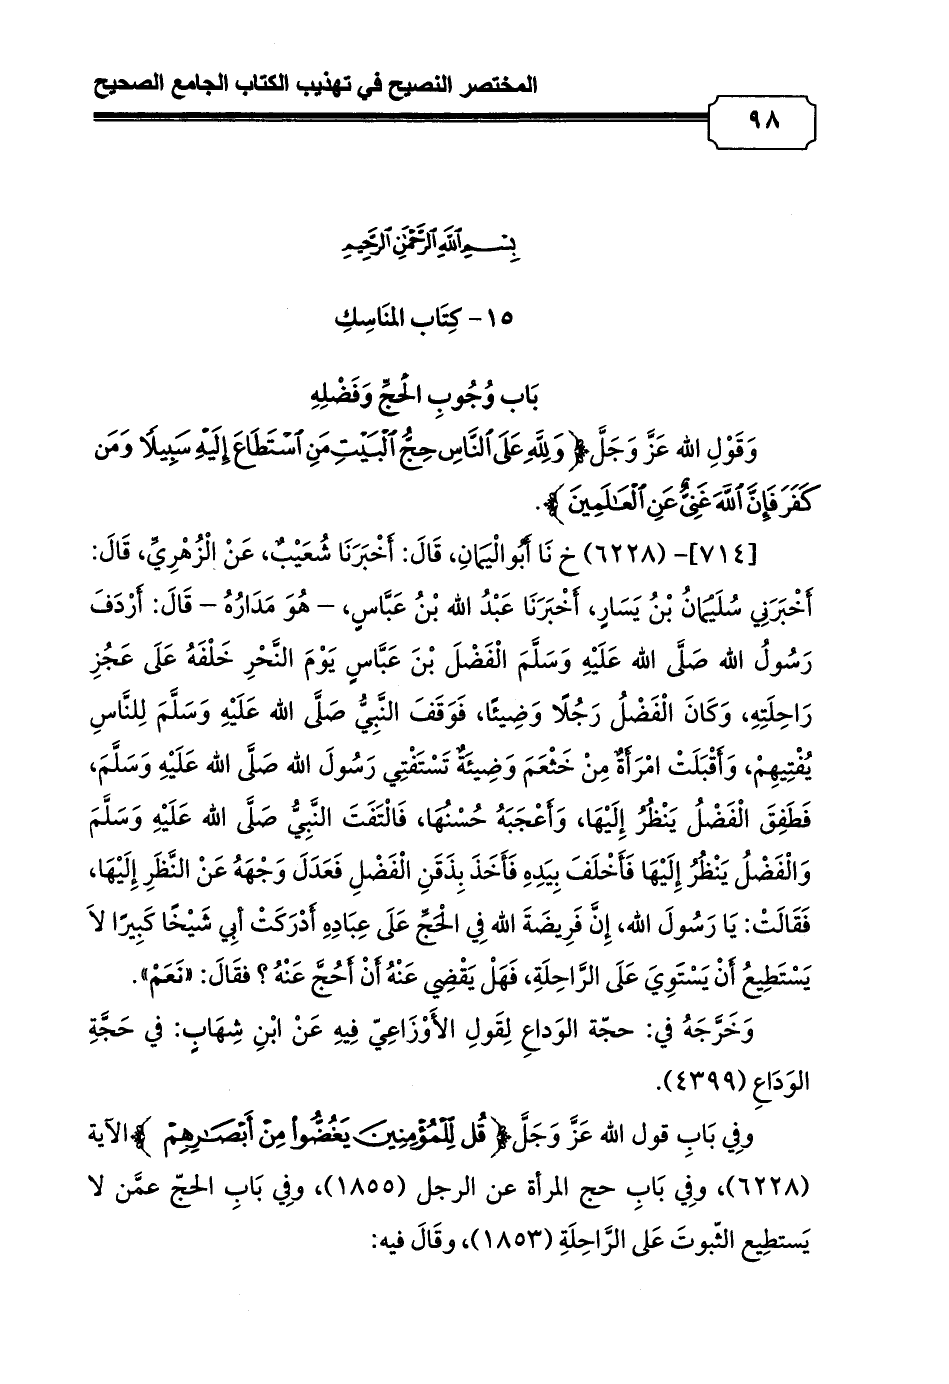 المختصر النصيح في تهذيب الكتاب الجامع الصحيح
٩٨
بِسْمِ ٱللَّهِ ٱلرَّحْمَٰنِ ٱلرَّحِيمِ
١٥- كِتَاب المَنَاسِكِ
بَاب وُجُوبِ الْحَجِّ وَفَضْلِهِ
وَقَوْلِ الله عَزَّ وَجَلَّ ﴿وَلِلَّهِ عَلَى ٱلنَّاسِ حِجُّ ٱلْبَيْتِ مَنِ ٱسْتَطَاعَ إِلَيْهِ سَبِيلًا وَمَن
كَفَرَ فَإِنَّ ٱللَّهَ غَنِيٌّ عَنِ ٱلْعَالَمِينَ﴾.
[٧١٤]- (٦٢٢٨) خ نَا أَبُو الْيَمَانِ، قَالَ: أَخْبَرَنَا شُعَيْبٌ، عَنْ الْزُهْرِيِّ، قَالَ:
أَخْبَرَنِي سُلَيْمَانُ بْنُ يَسَارٍ، أَخْبَرَنَا عَبْدُ الله بْنُ عَبَّاسٍ، – هُوَ مَدَارُهُ – قَالَ: أَرْدَفَ
رَسُولُ الله صَلَّى الله عَلَيْهِ وَسَلَّمَ الْفَضْلَ بْنَ عَبَّاسٍ يَوْمَ النَّحْرِ خَلْفَهُ عَلَى عَجُزِ
رَاحِلَتِهِ، وَكَانَ الْفَضْلُ رَجُلًا وَضِيئًا، فَوَقَفَ النَّبِيُّ صَلَّى الله عَلَيْهِ وَسَلَّمَ لِلنَّاسِ
يُفْتِيهِمْ، وَأَقْبَلَتْ امْرَأَةٌ مِنْ خَثْعَمَ وَضِيئَةٌ تَسْتَفْتِي رَسُولَ الله صَلَّى الله عَلَيْهِ وَسَلَّمَ،
فَطَفِقَ الْفَضْلُ يَنْظُرُ إِلَيْهَا، وَأَعْجَبَهُ حُسْنُهَا، فَالْتَفَتَ النَّبِيُّ صَلَّى الله عَلَيْهِ وَسَلَّمَ
وَالْفَضْلُ يَنْظُرُ إِلَيْهَا فَأَخْلَفَ بِيَدِهِ فَأَخَذَ بِذَقَنِ الْفَضْلِ فَعَدَلَ وَجْهَهُ عَنْ النَّظَرِ إِلَيْهَا،
فَقَالَتْ: يَا رَسُولَ الله، إِنَّ فَرِيضَةَ الله فِي الْحَجِّ عَلَى عِبَادِهِ أَدْرَكَتْ أبِي شَيْخًا كَبِيرًا لاَ
يَسْتَطِيعُ أَنْ يَسْتَوِيَ عَلَى الرَّاحِلَةِ، فَهَلْ يَقْضِي عَنْهُ أَنْ أَحُجَّ عَنْهُ؟ فقَالَ: «نَعَمْ».
وَخَرَّجَهُ في: حجّة الوَداعِ لِقَولِ الأَوْزَاعِيّ فِيهِ عَنْ ابْنِ شِهَابٍ: فِي حَجَّةِ
الوَدَاعِ (٤٣٩٩).
وفِي بَابِ قول الله عَزَّ وَجَلَّ ﴿قُل لِّلْمُؤْمِنِينَ يَغُضُّوا۟ مِنْ أَبْصَـٰرِهِمْ﴾ الآية
(٦٢٢٨)، وفِي بَابِ حج المرأة عن الرجل (١٨٥٥)، وفِي بَابِ الحَجّ عمَّن لا
يَستطِيع الثّبوتَ عَلى الرَّاحِلَةِ (١٨٥٣)، وقَالَ فيه: